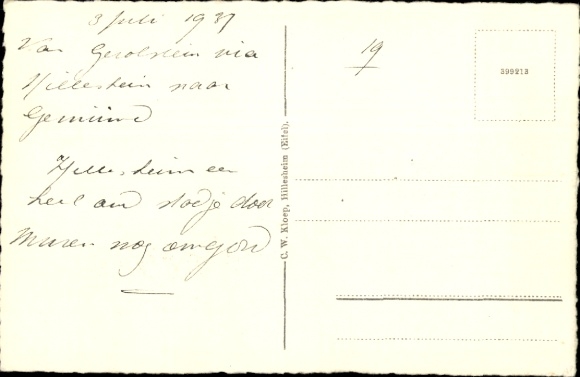 3 Juli 1937
Van Gerolstein via
Hillesheim naar
Gemünd
Hillesheim een
heel oud stadje door
Muren nog omgord
19
399213
C. W. Kloep, Hillesheim (Eifel).